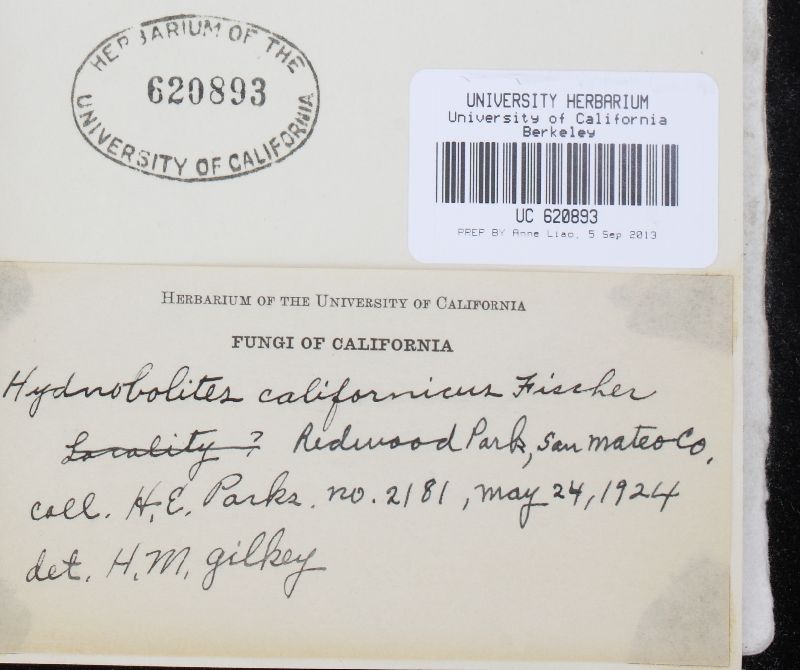 HERBARIUM OF THE
620893
UNIVERSITY OF CALIFORNIA
UNIVERSITY HERBARIUM
University of California
Berkeley
UC 620893
PREP BY Anne Liao, 5 Sep 2013
HERBARIUM OF THE UNIVERSITY OF CALIFORNIA
FUNGI OF CALIFORNIA
Hydnobolites californicus Fischer
Locality ? Redwood Park, San Mateo Co.
coll. H.E. Parks. no. 2181, May 24, 1924
det. H.M. Gilkey